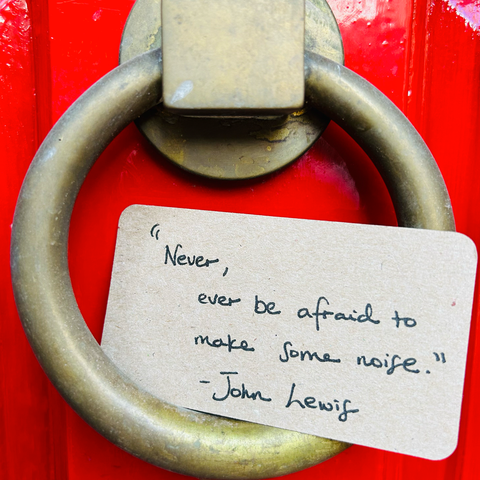 “Never,
ever be afraid to
make some noise.”
-John Lewis